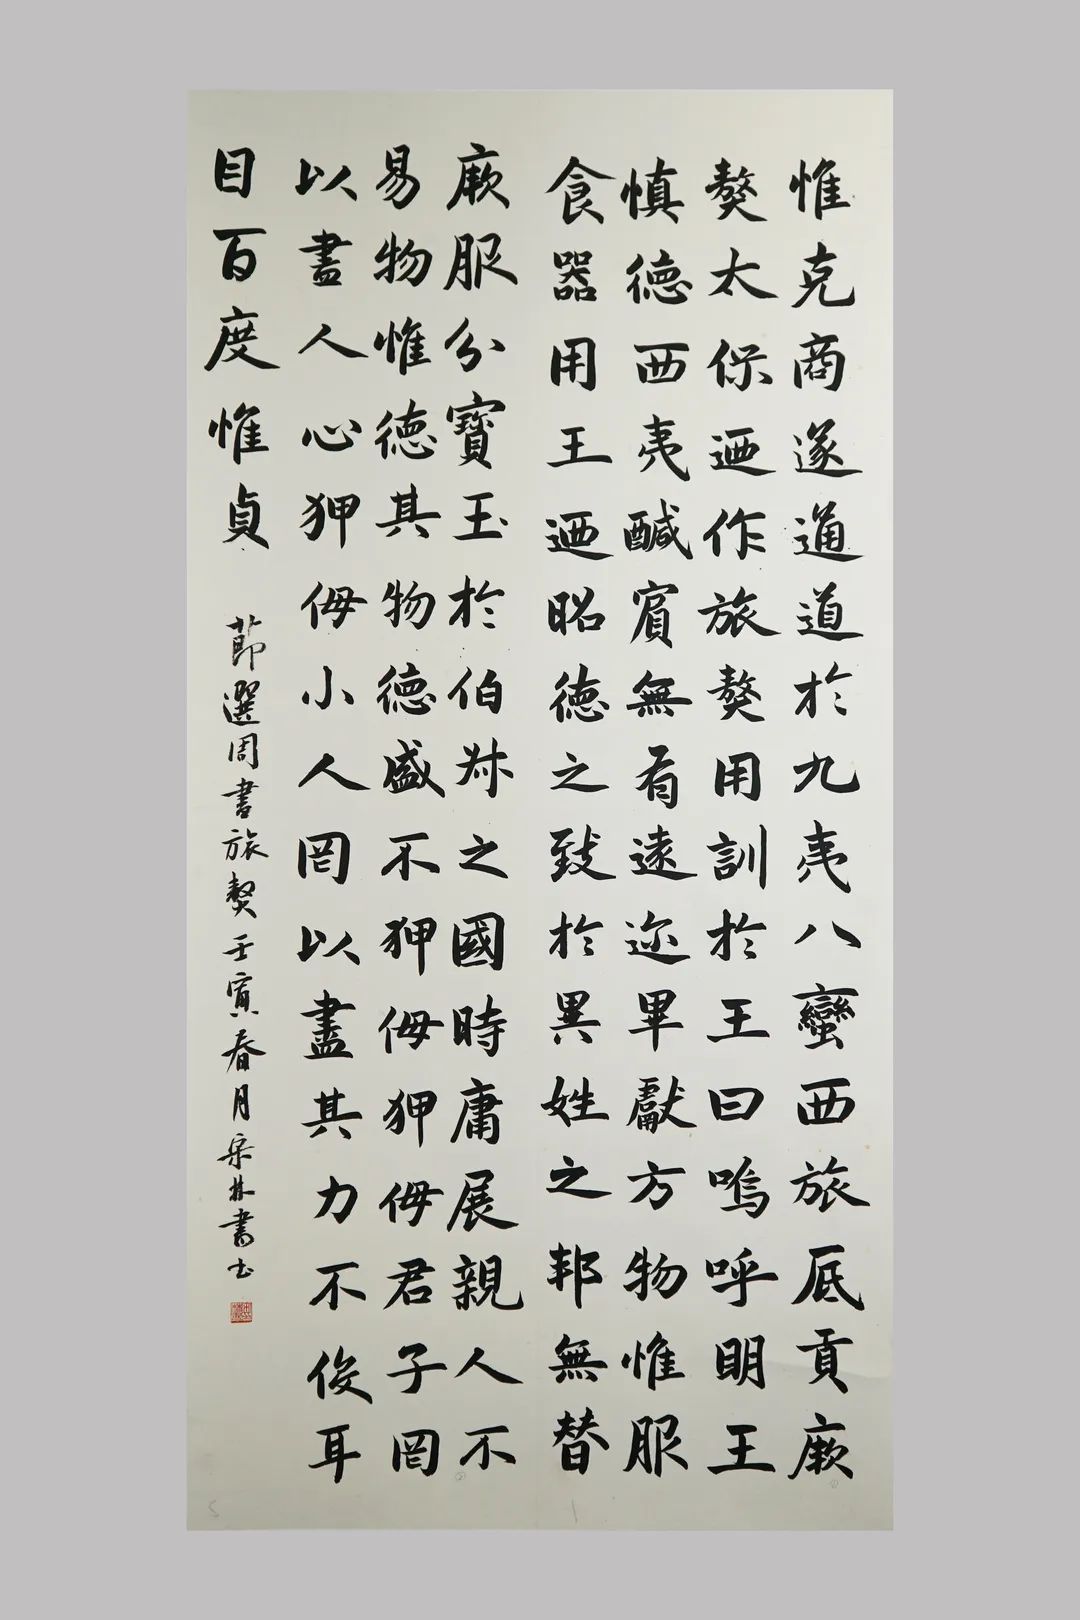 惟克商遂通道於九夷八蠻西旅底貢厥
獒太保迺作旅獒用訓於王曰嗚呼明王
慎德西夷醎賓無有遠迩畢獻方物惟服
食器用王迺昭德之致於異姓之邦無替
厥服分寶玉於伯叔之國時庸展親人不
易物惟德其物德盛不狎侮狎侮君子罔
以盡人心狎侮小人罔以盡其力不役耳
目百度惟貞
節選周書旅獒壬寅春月宋林書书